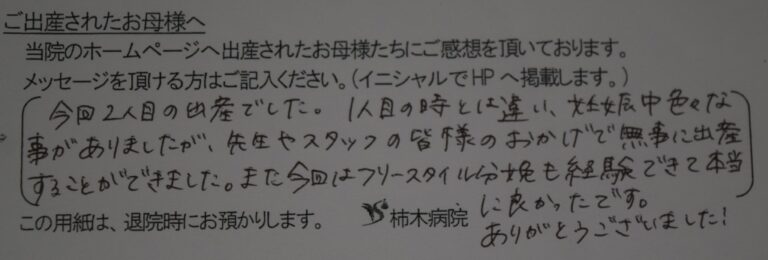 ご出産されたお母様へ
当院のホームページへ出産されたお母様たちにご感想を頂いております。
メッセージを頂ける方はご記入ください。(イニシャルでHPへ掲載します。)
今回2人目の出産でした。1人目の時とは違い、妊娠中色々な
事がありましたが、先生やスタッフの皆様のおかげで無事に出産
することができました。また今回はフリースタイル分娩も経験できて本当
に良かったです。
ありがとうございました!
この用紙は、退院時にお預かりします。
柿木病院